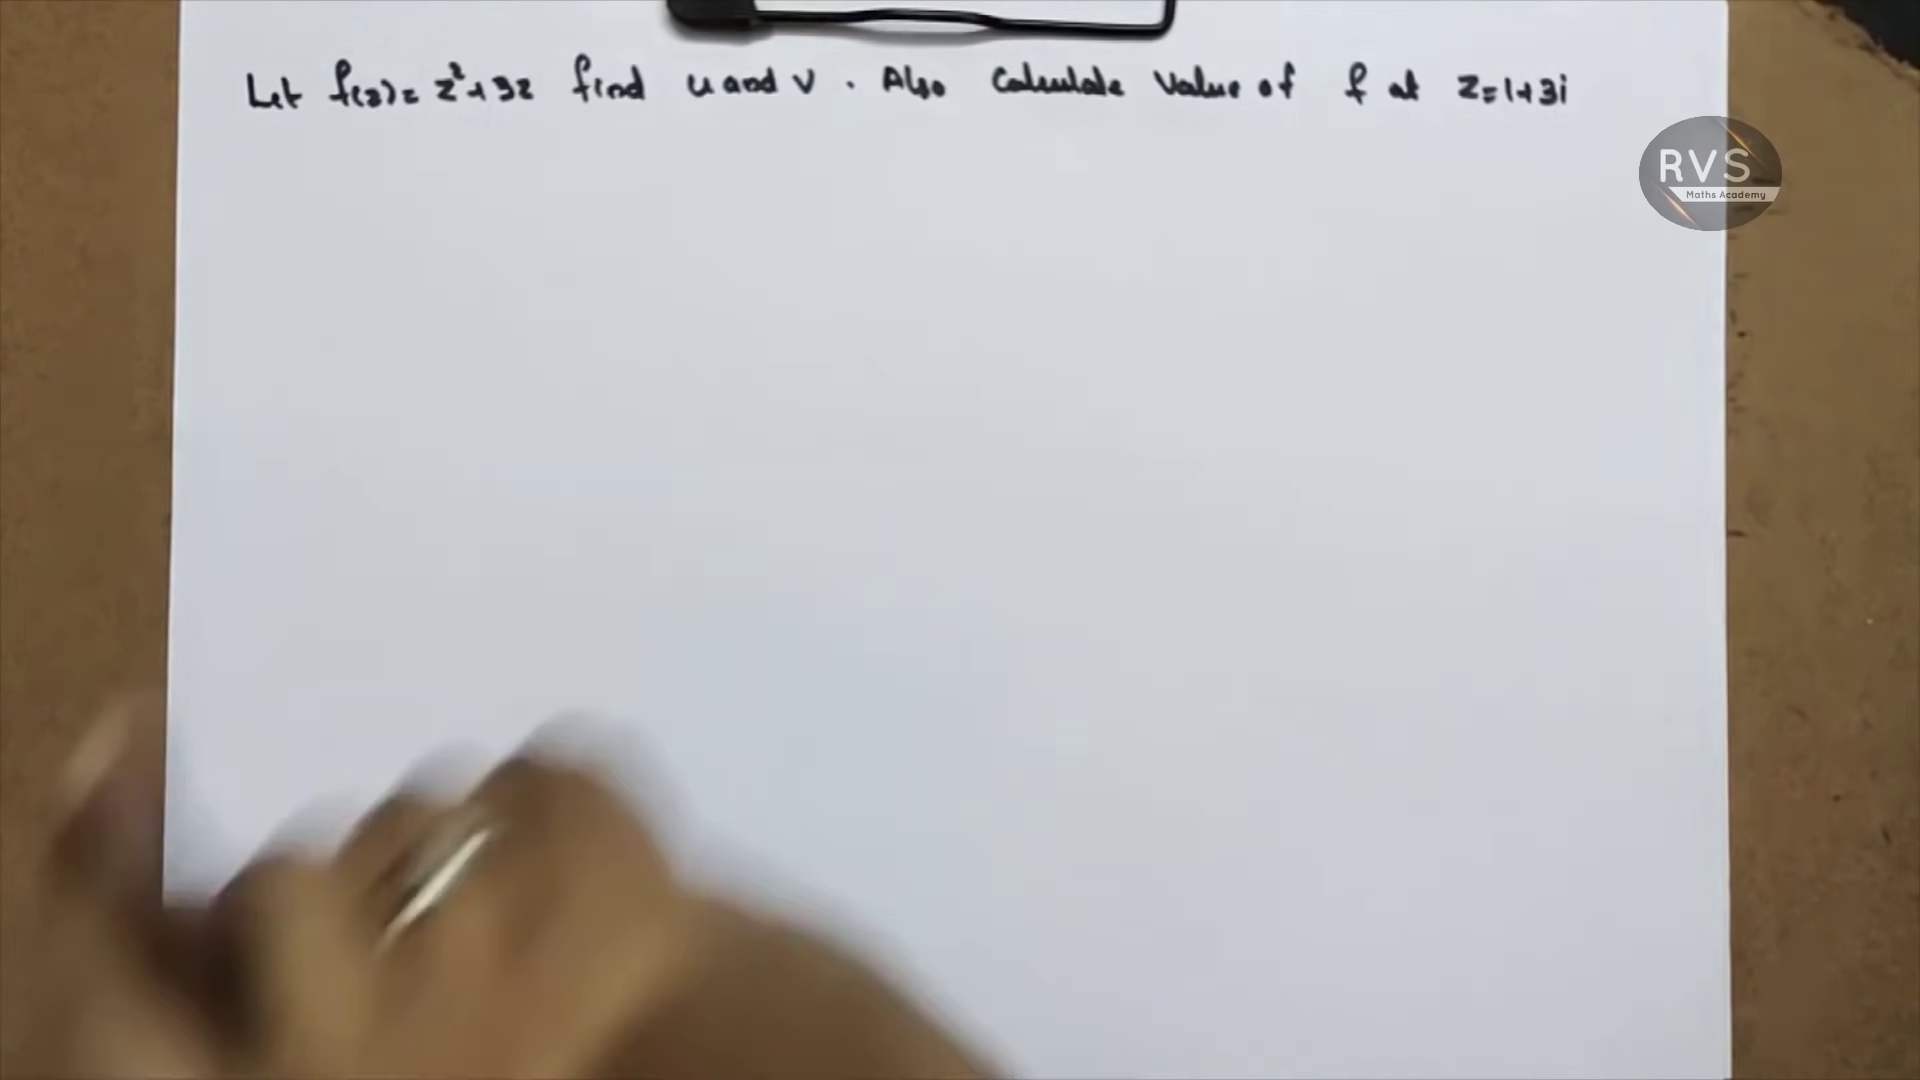 Let f(z) = z²+3z find u and v . Also Calculate Value of f at z=1+3i
RVS
Maths Academy